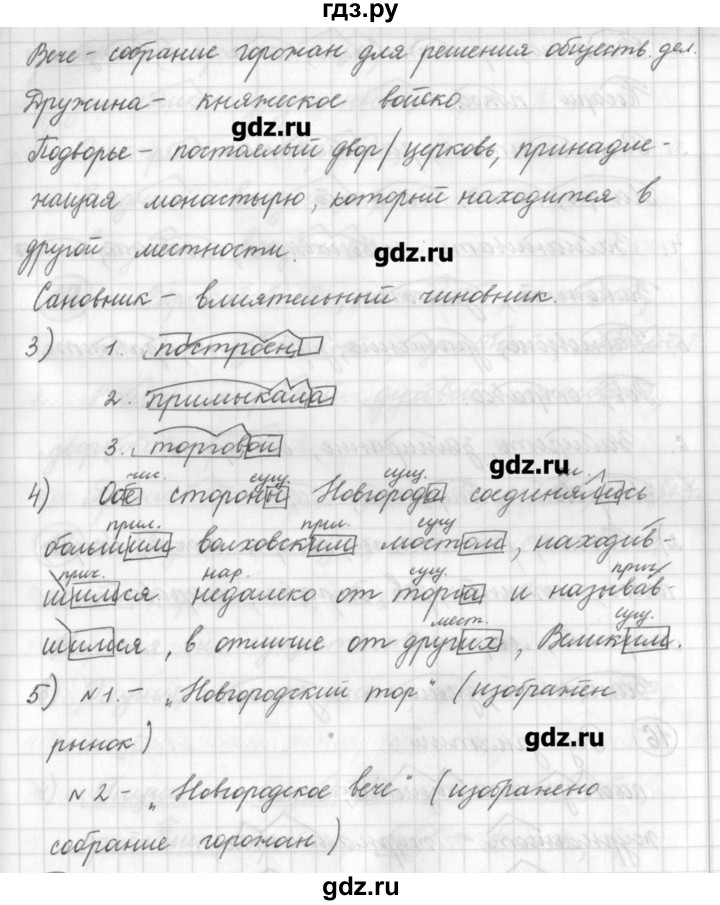 гдз.ру
Вече – собрание горожан для решения обществ. дел.
Дружина – княжеское войско.
gdz.ru
Подворье – постоялый двор/церковь, принадле-
жащая монастырю, который находится в
другой местности.
gdz.ru
Сановник – влиятельный чиновник.
3) 1. построен
2. примыкала
3. торговой
gdz.ru
чис. сущ. сущ.
4) Обе стороны Новгорода соединялись
прил. прил. сущ
большим волховским мостом, находив-
прич. нар. сущ. прич
шимся недалеко от торга и называв
мест. сущ.
шимся, в отличие от других, Великим.
5) №1. – „Новгородский тор" (изображён
рынок)
gdz.ru
№2 – „Новгородское вече" (изображено
собрание горожан)
gdz.ru